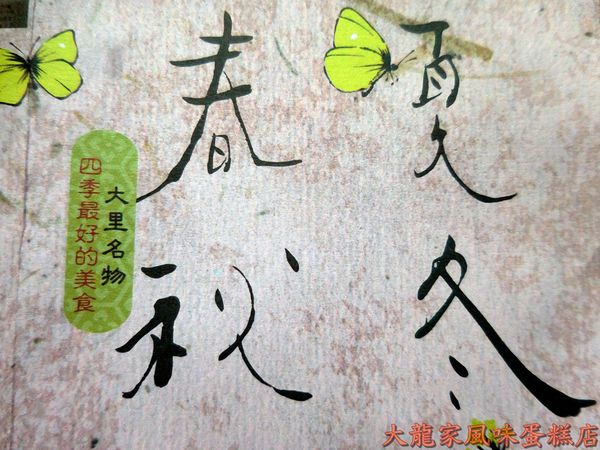 春
夏
秋
冬
大里名物
四季最好的美食
大龍家風味蛋糕店